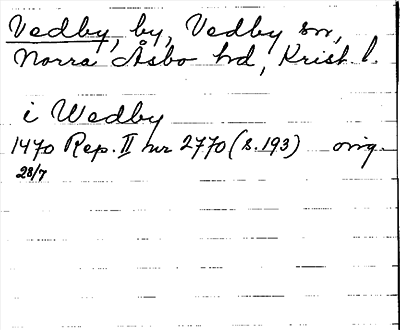 Vedby, by, Vedby sn,
Norra Åsbo hd, Krist. l.
i Wedby
1470 Rep. II nr 2770 (s. 193) orig.
28/7